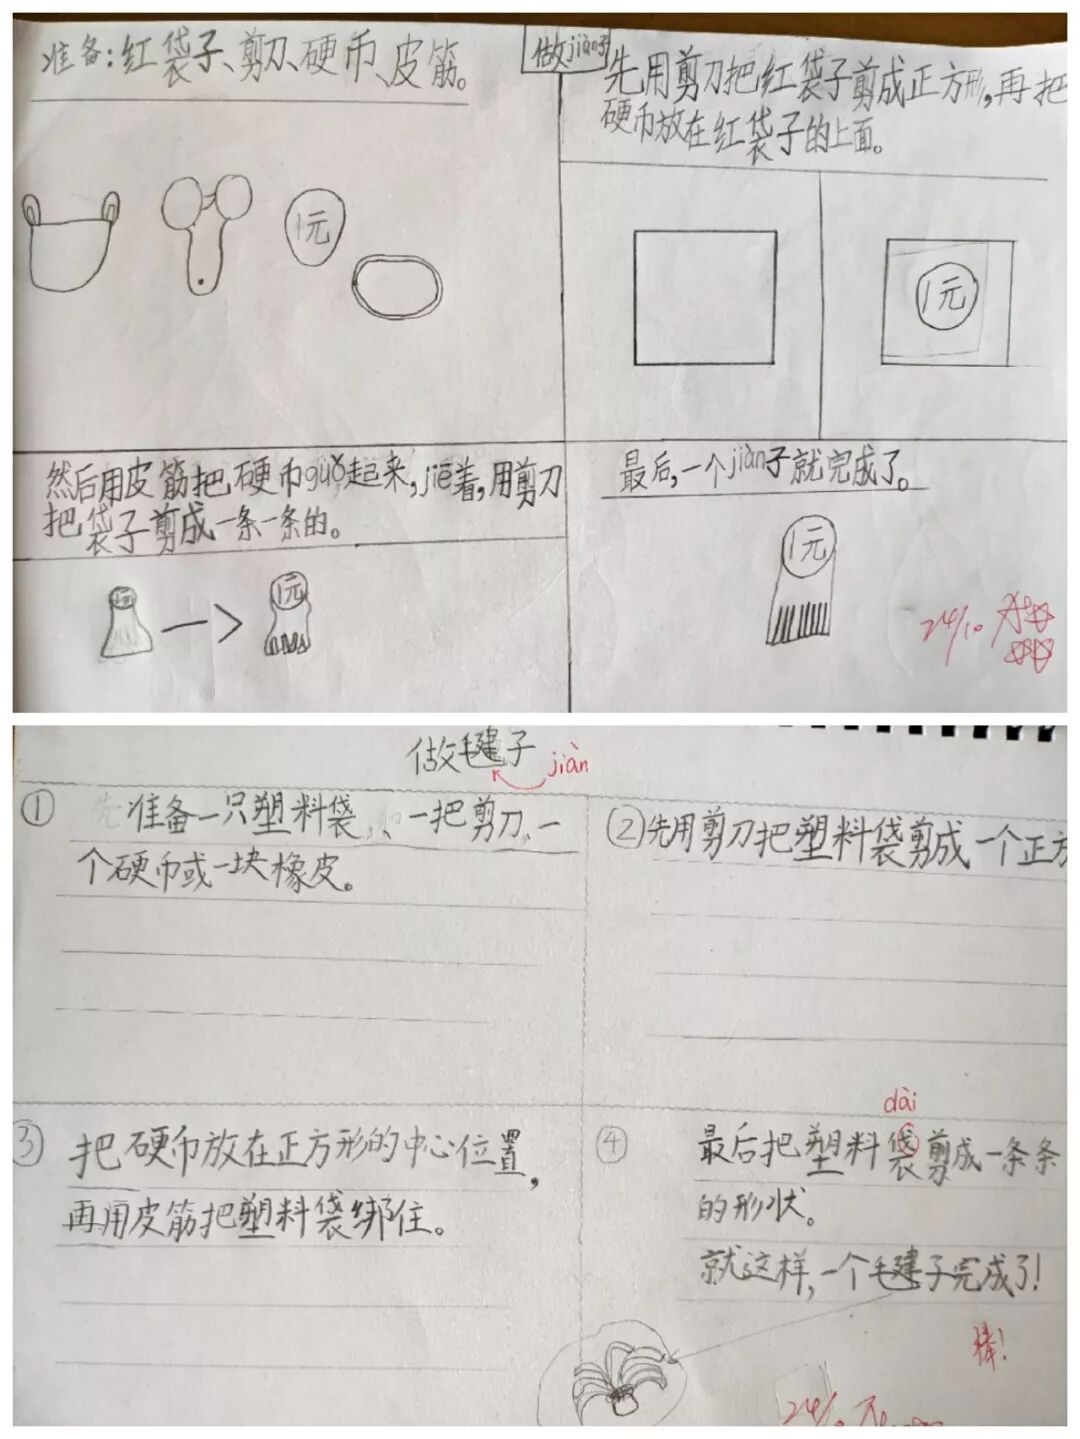 准备：红袋子、剪刀、硬币、皮筋。
1元
做jiàn子
先用剪刀把红袋子剪成正方形，再把
硬币放在红袋子的上面。
1元
然后用皮筋把硬币guǒ起来，jiē着，用剪刀
把袋子剪成一条一条的。
1元
1元
最后，一个jiàn子就完成了。
1元
24/10
做毽子
jiàn
① 准备一只塑料袋、一把剪刀、一
个硬币或一块橡皮。
②先用剪刀把塑料袋剪成一个正方
③ 把硬币放在正方形的中心位置，
再用皮筋把塑料袋绑住。
dài
④ 最后把塑料袋剪成一条条
的形状。
就这样，一个毽子完成了！
棒！
24/10